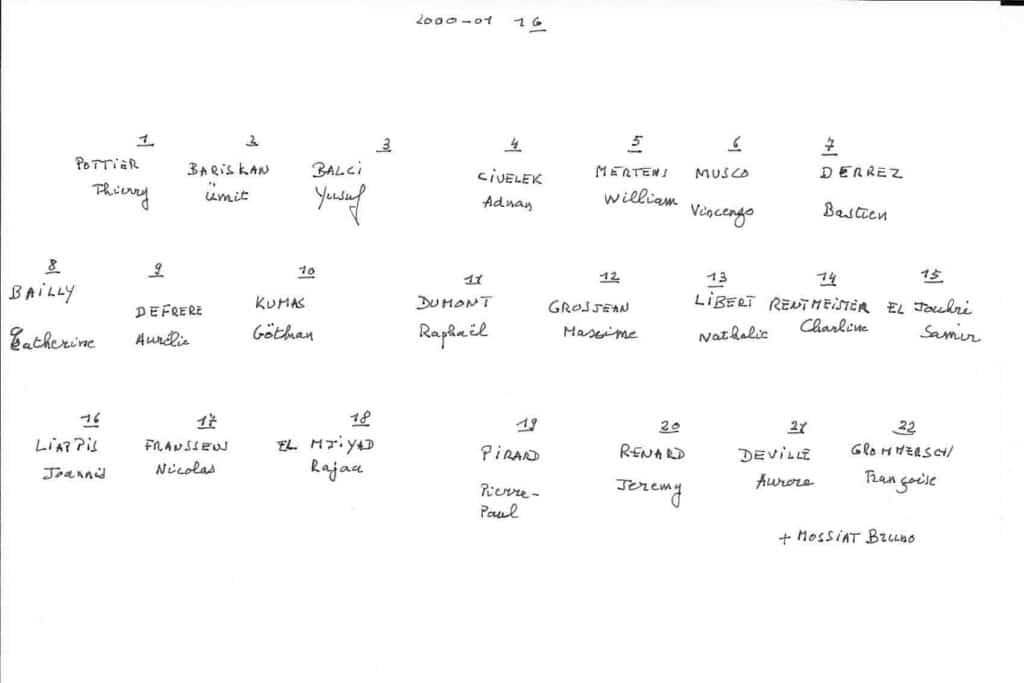 2000-01 1G
1 2 3 4 5 6 7
POTTIER BARISKAN BALCI CIVELEK MERTENS MUSCO DERREZ
Thierry Ümit Yusuf Adnan William Vincenzo Bastien
8 9 10 11 12 13 14 15
BAILLY DEFRERE KUMAS DUMONT GROSJEAN LIBERT RENTMEISTER EL Jouhri
Catherine Aurélie Göthan Raphaël Maxime Nathalie Charline Samir
16 17 18 19 20 21 22
LIAPPIS FRANSSENS EL MJIYAD PIRARD RENARD DEVILLE GROMMERSCH
Joannis Nicolas Rajaa Pierre- Jeremy Aurore Françoise
Paul
+ MOSSIAT BRUNO